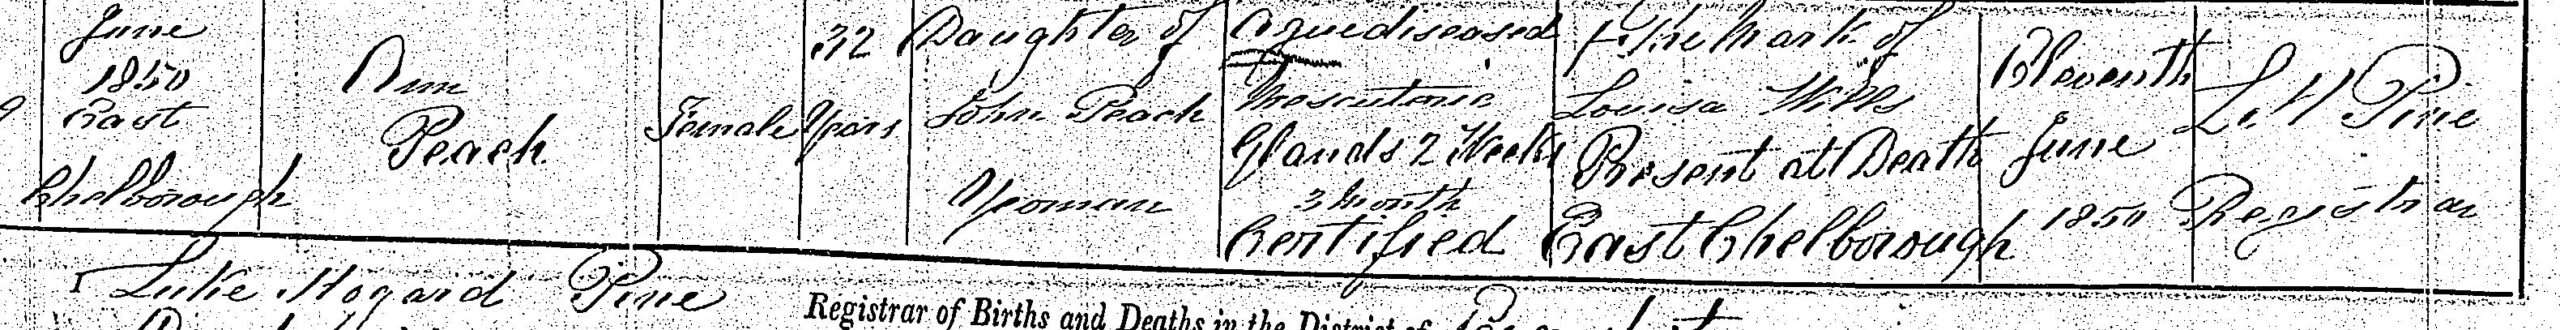 June
1850
East
Chelborough
Ann
Peach
Female
32
Years
Daughter of
John Peach
Yeoman
Ague diseased
Mesenteric
Glands 2 Weeks
3 Month
Certified
X The Mark of
Louisa Wills
Present at Death
East Chelborough
Eleventh
June
1850
L. H Pine
Registrar
Luke Hogard Pine
Registrar of Births and Deaths in the District of